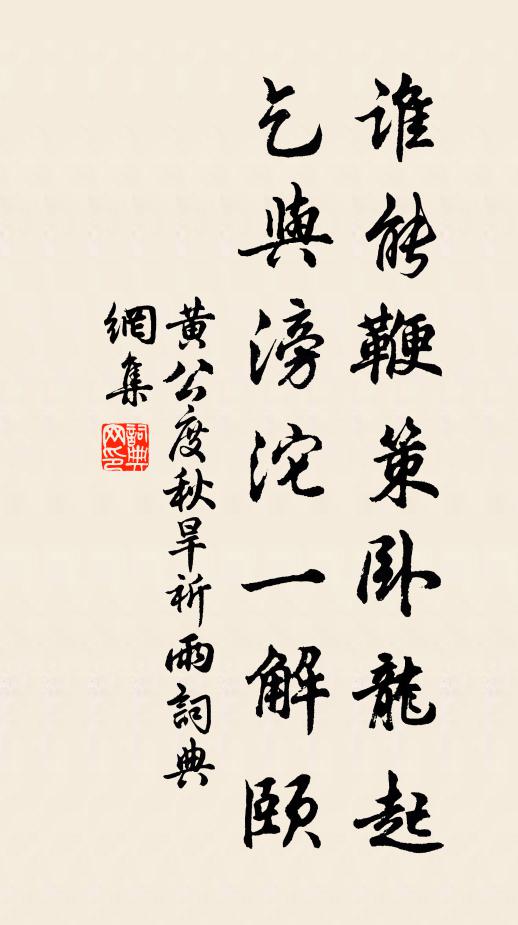 誰能鞭策卧龍起
乞與滂沱一解頤
黃公度秋旱祈雨詞典
網集
詞典
网印